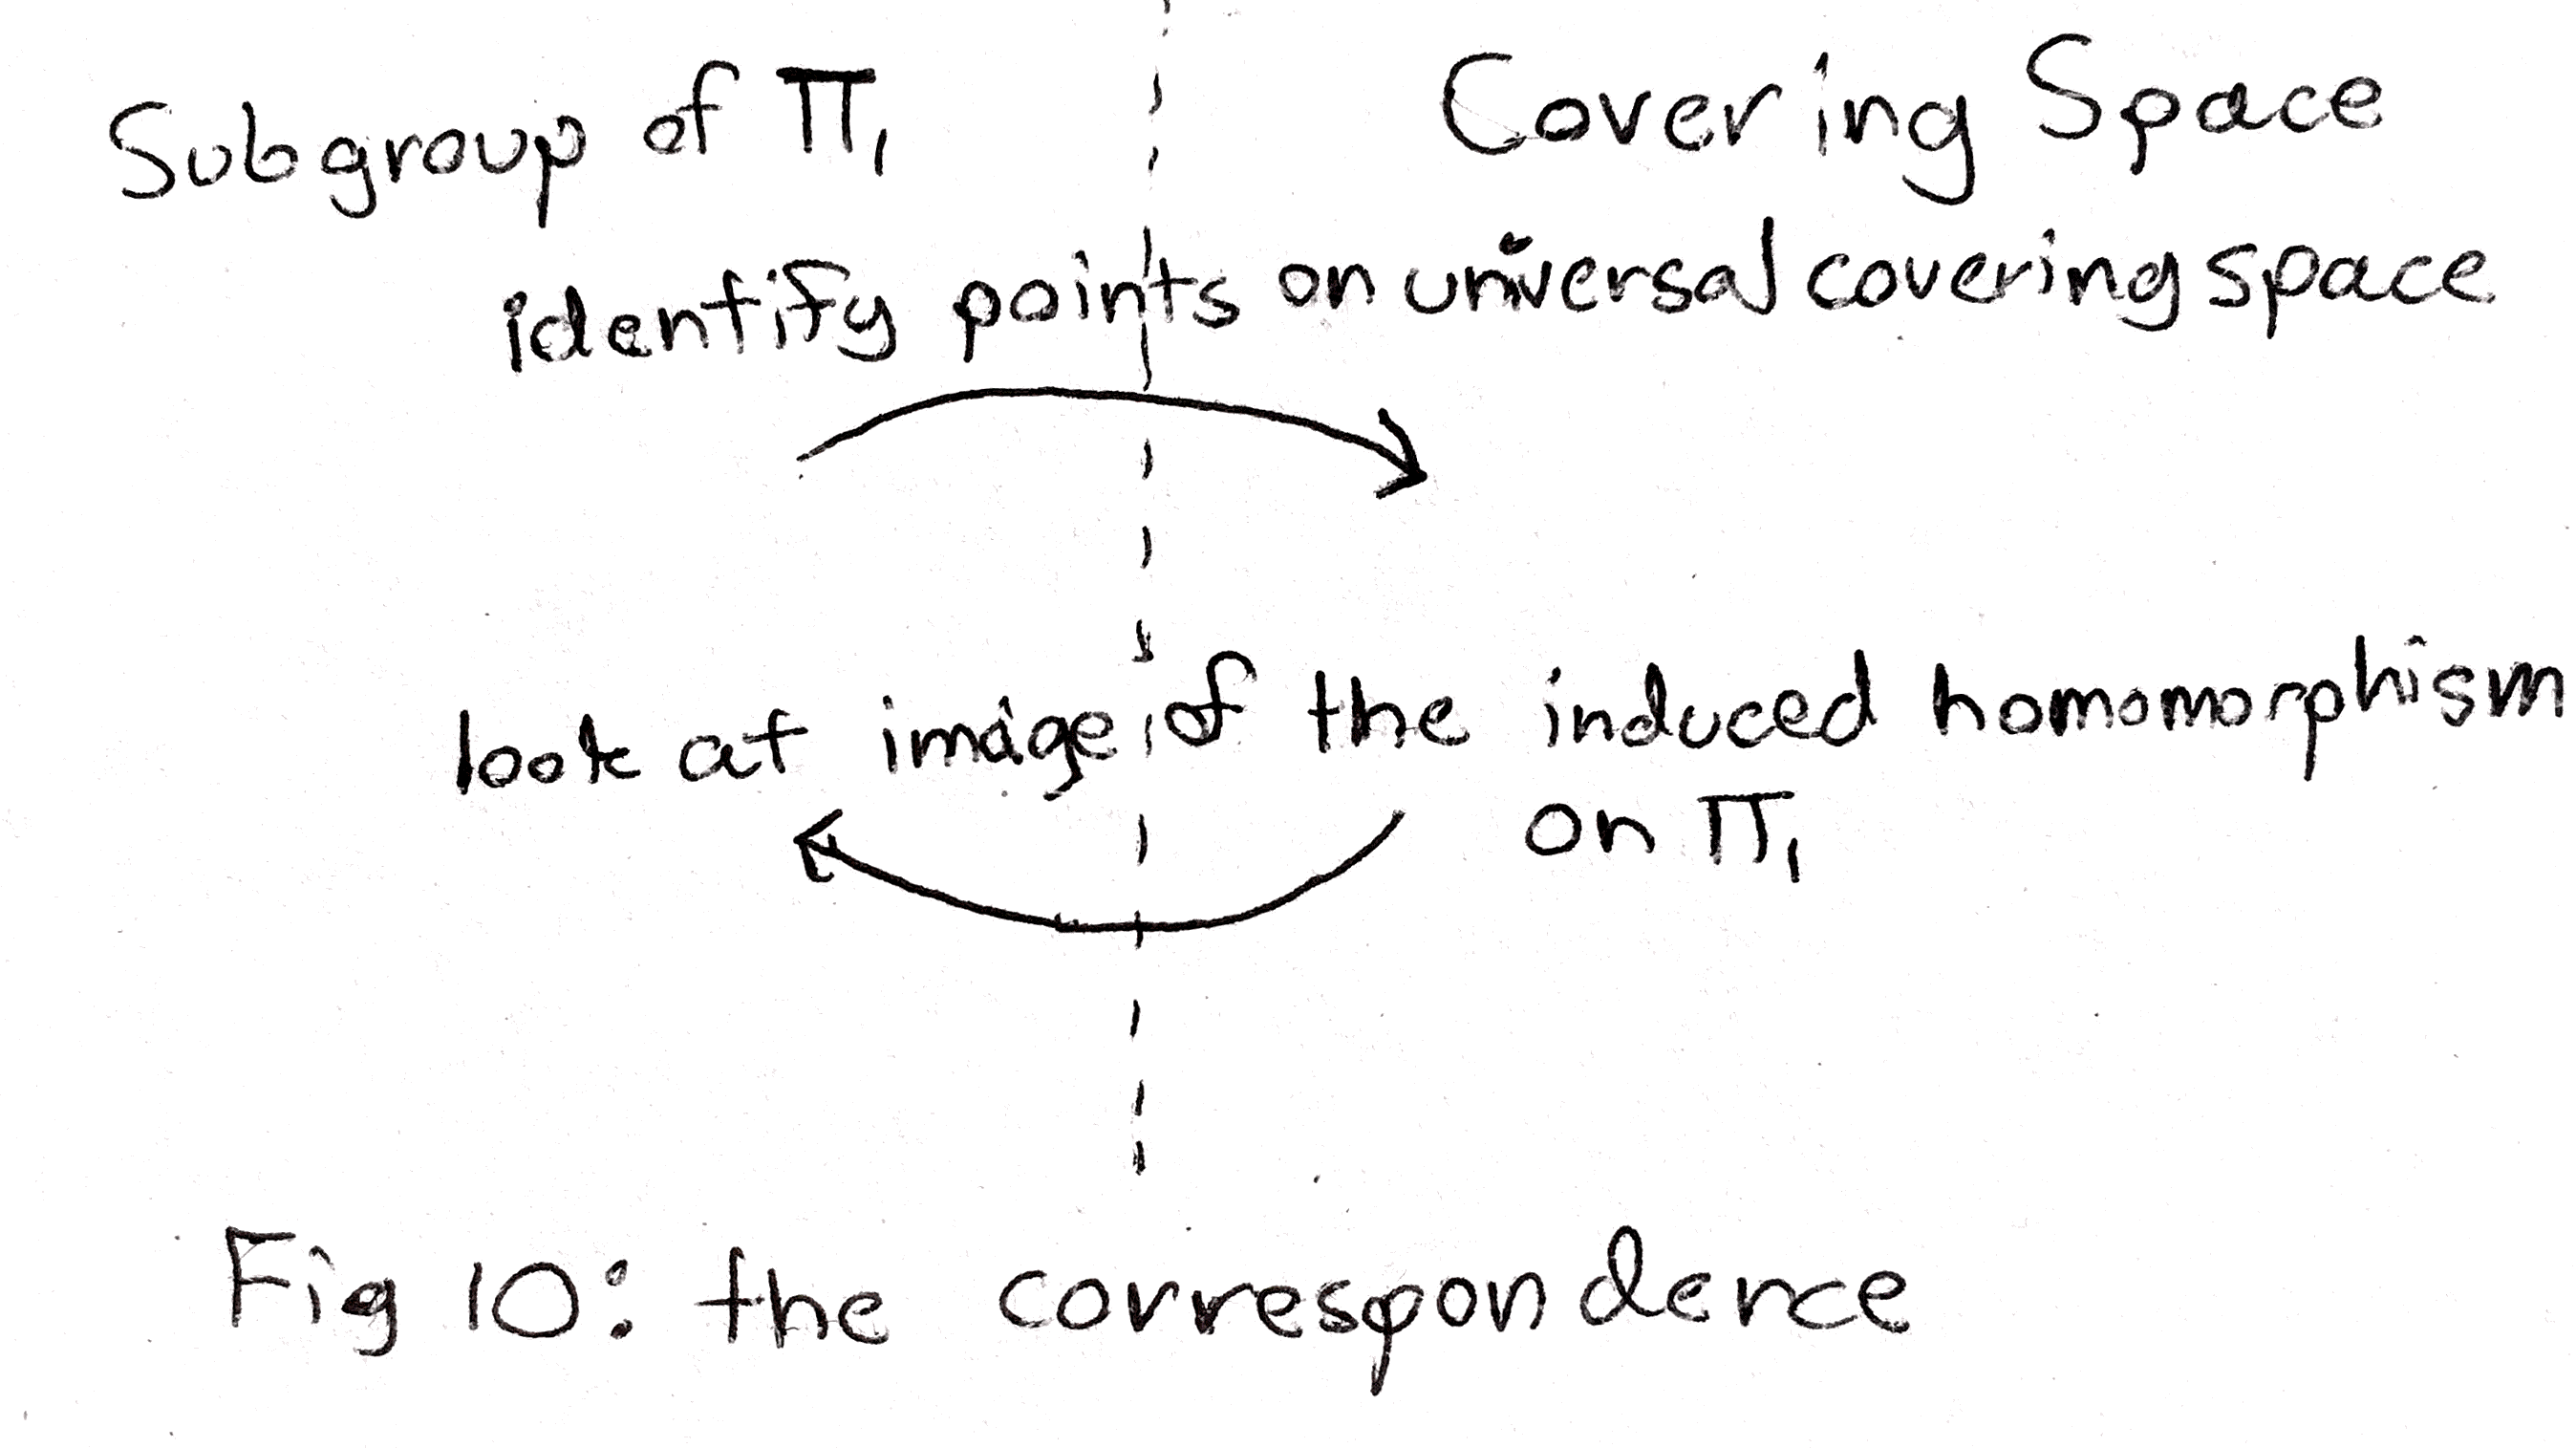 Subgroup of π₁
Covering Space
identify points on universal covering space
look at image of the induced homomorphism
on π₁
Fig 10: the correspondence